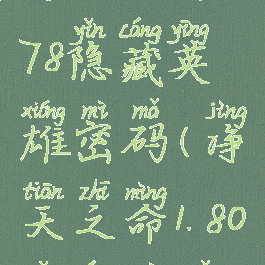 yǐn cáng yīng
78隐藏英
xióng mì mǎ jìng
雄密码(净
tiān zhī mìng
天之命1.80